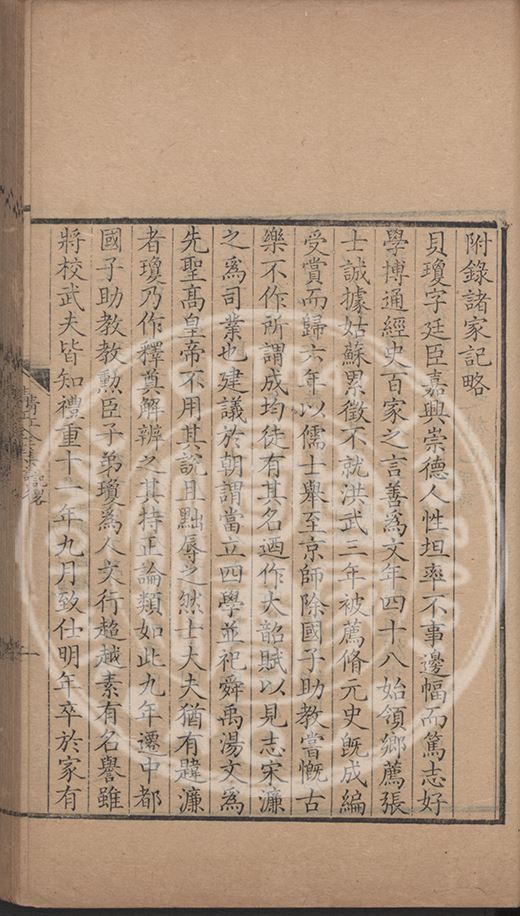 附錄諸家記略
貝瓊字廷臣嘉興崇德人性坦率不事邊幅而篤志好
學博通經史百家之言善爲文年四十八始領鄉薦張
士誠據姑蘇累徵不就洪武三年被薦脩元史旣成編
受賞而歸六年以儒士舉至京師除國子助教嘗慨古
樂不作所謂成均徒有其名迺作大韶賦以見志宋濂
之爲司業也建議於朝謂當立四學並祀舜禹湯文爲
先聖高皇帝不用其說且黜辱之然士大夫猶有韙濂
者瓊乃作釋奠解辨之其持正論類如此九年遷中都
國子助教教勲臣子弟瓊爲人文行超越素有名譽雖
將校武夫皆知禮重十一年九月致仕明年卒於家有